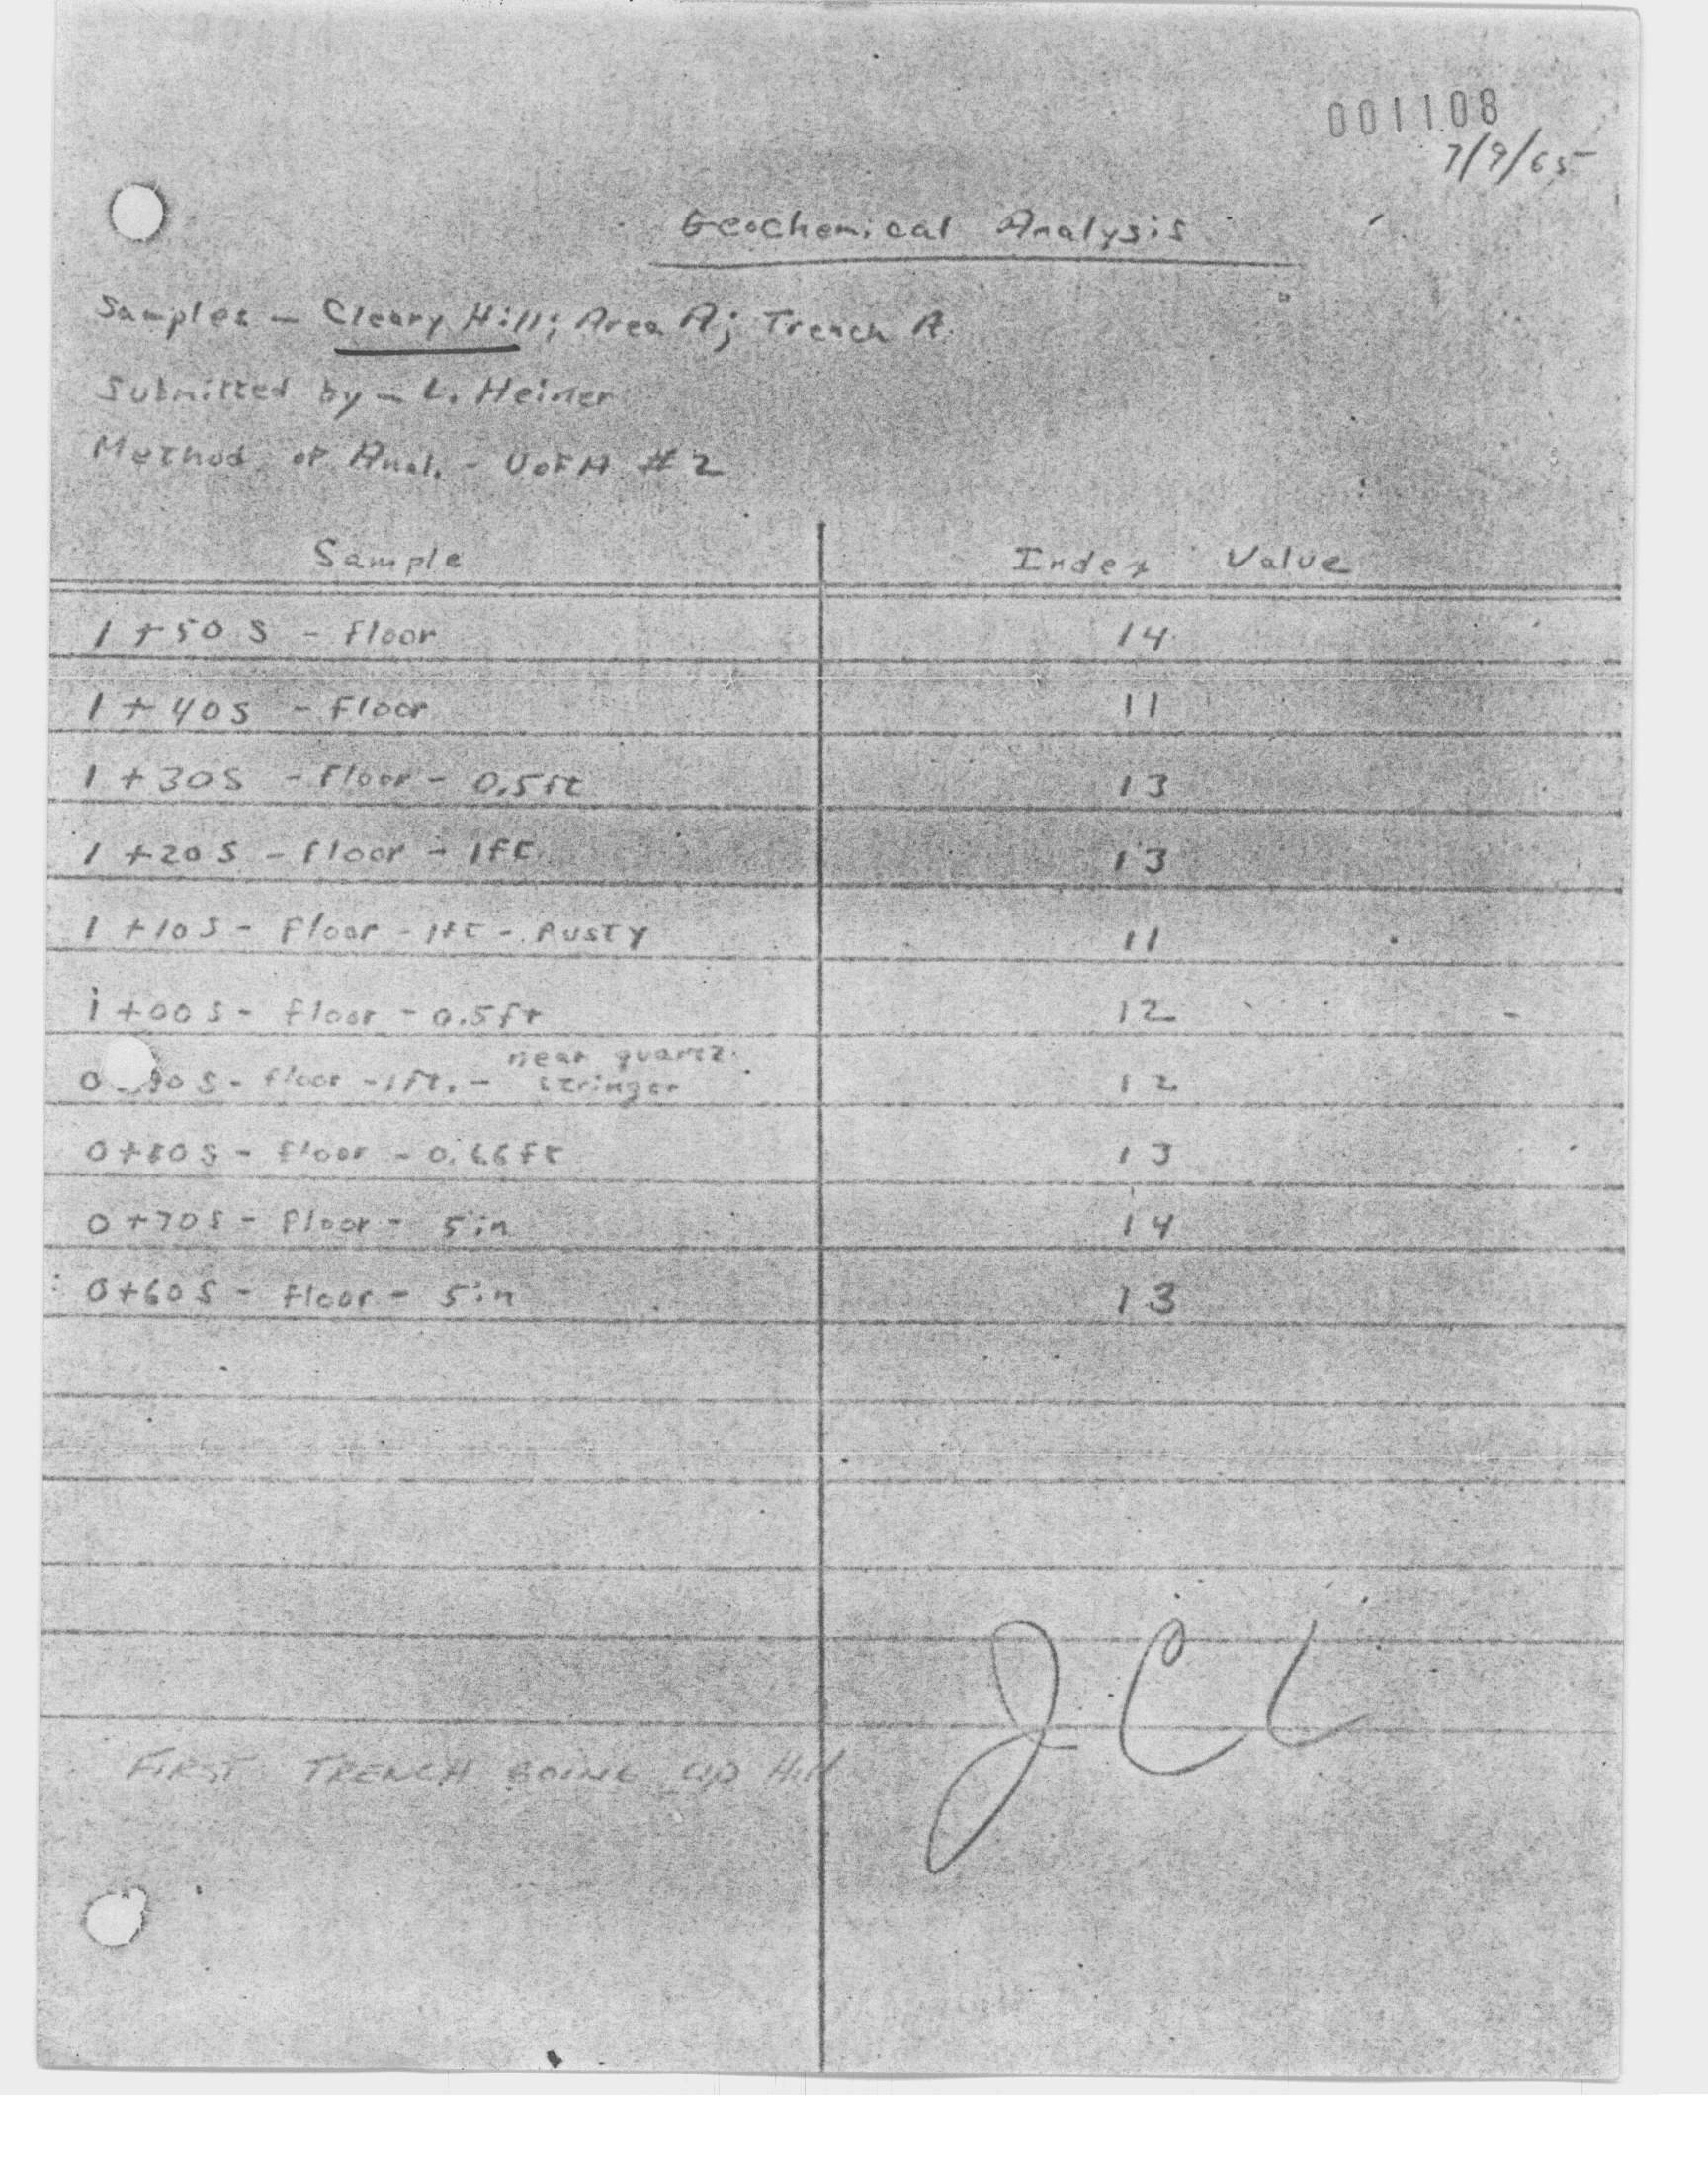 001108
7/9/65
Geochemical Analysis
Samples — Cleary Hill; Area A; Trench A.
Submitted by — L. Heiner
Method of Anal. - UofA #2
Sample Index Value
1+50 S - Floor 14
1+40S - Floor 11
1+30S - Floor - 0.5ft 13
1+20S - floor - 1ft 13
1+10S - Floor - 1ft - Rusty 11
1+00S - floor - 0.5ft 12
near quartz
0 90S - floor - 1ft. - stringer 12
0+80S - floor - 0.66ft 13
0+70S - floor - 5in 14
0+60S - floor - 5in 13
FIRST TRENCH GOING UP Hill
JCL